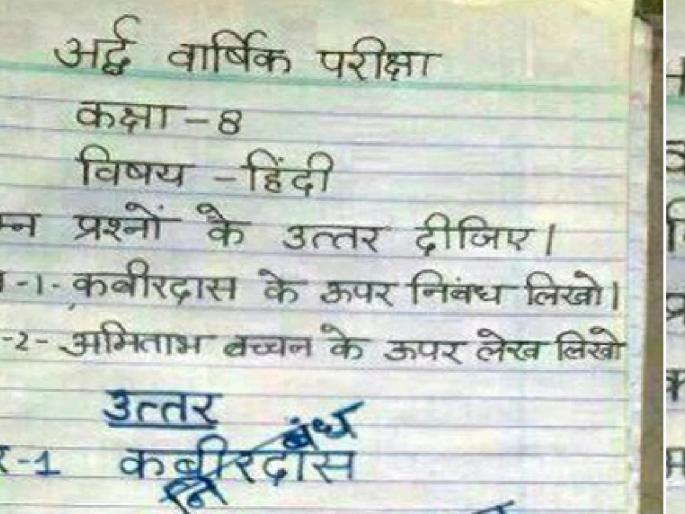 अर्द्ध वार्षिक परीक्षा
कक्षा - 8
विषय - हिंदी
म्न प्रश्नों के उत्तर दीजिए।
-1- कबीरदास के ऊपर निबंध लिखो।
-2- अमिताभ बच्चन के ऊपर लेख लिखो
उत्तर
बंध
र-1 कबीरदास
नि